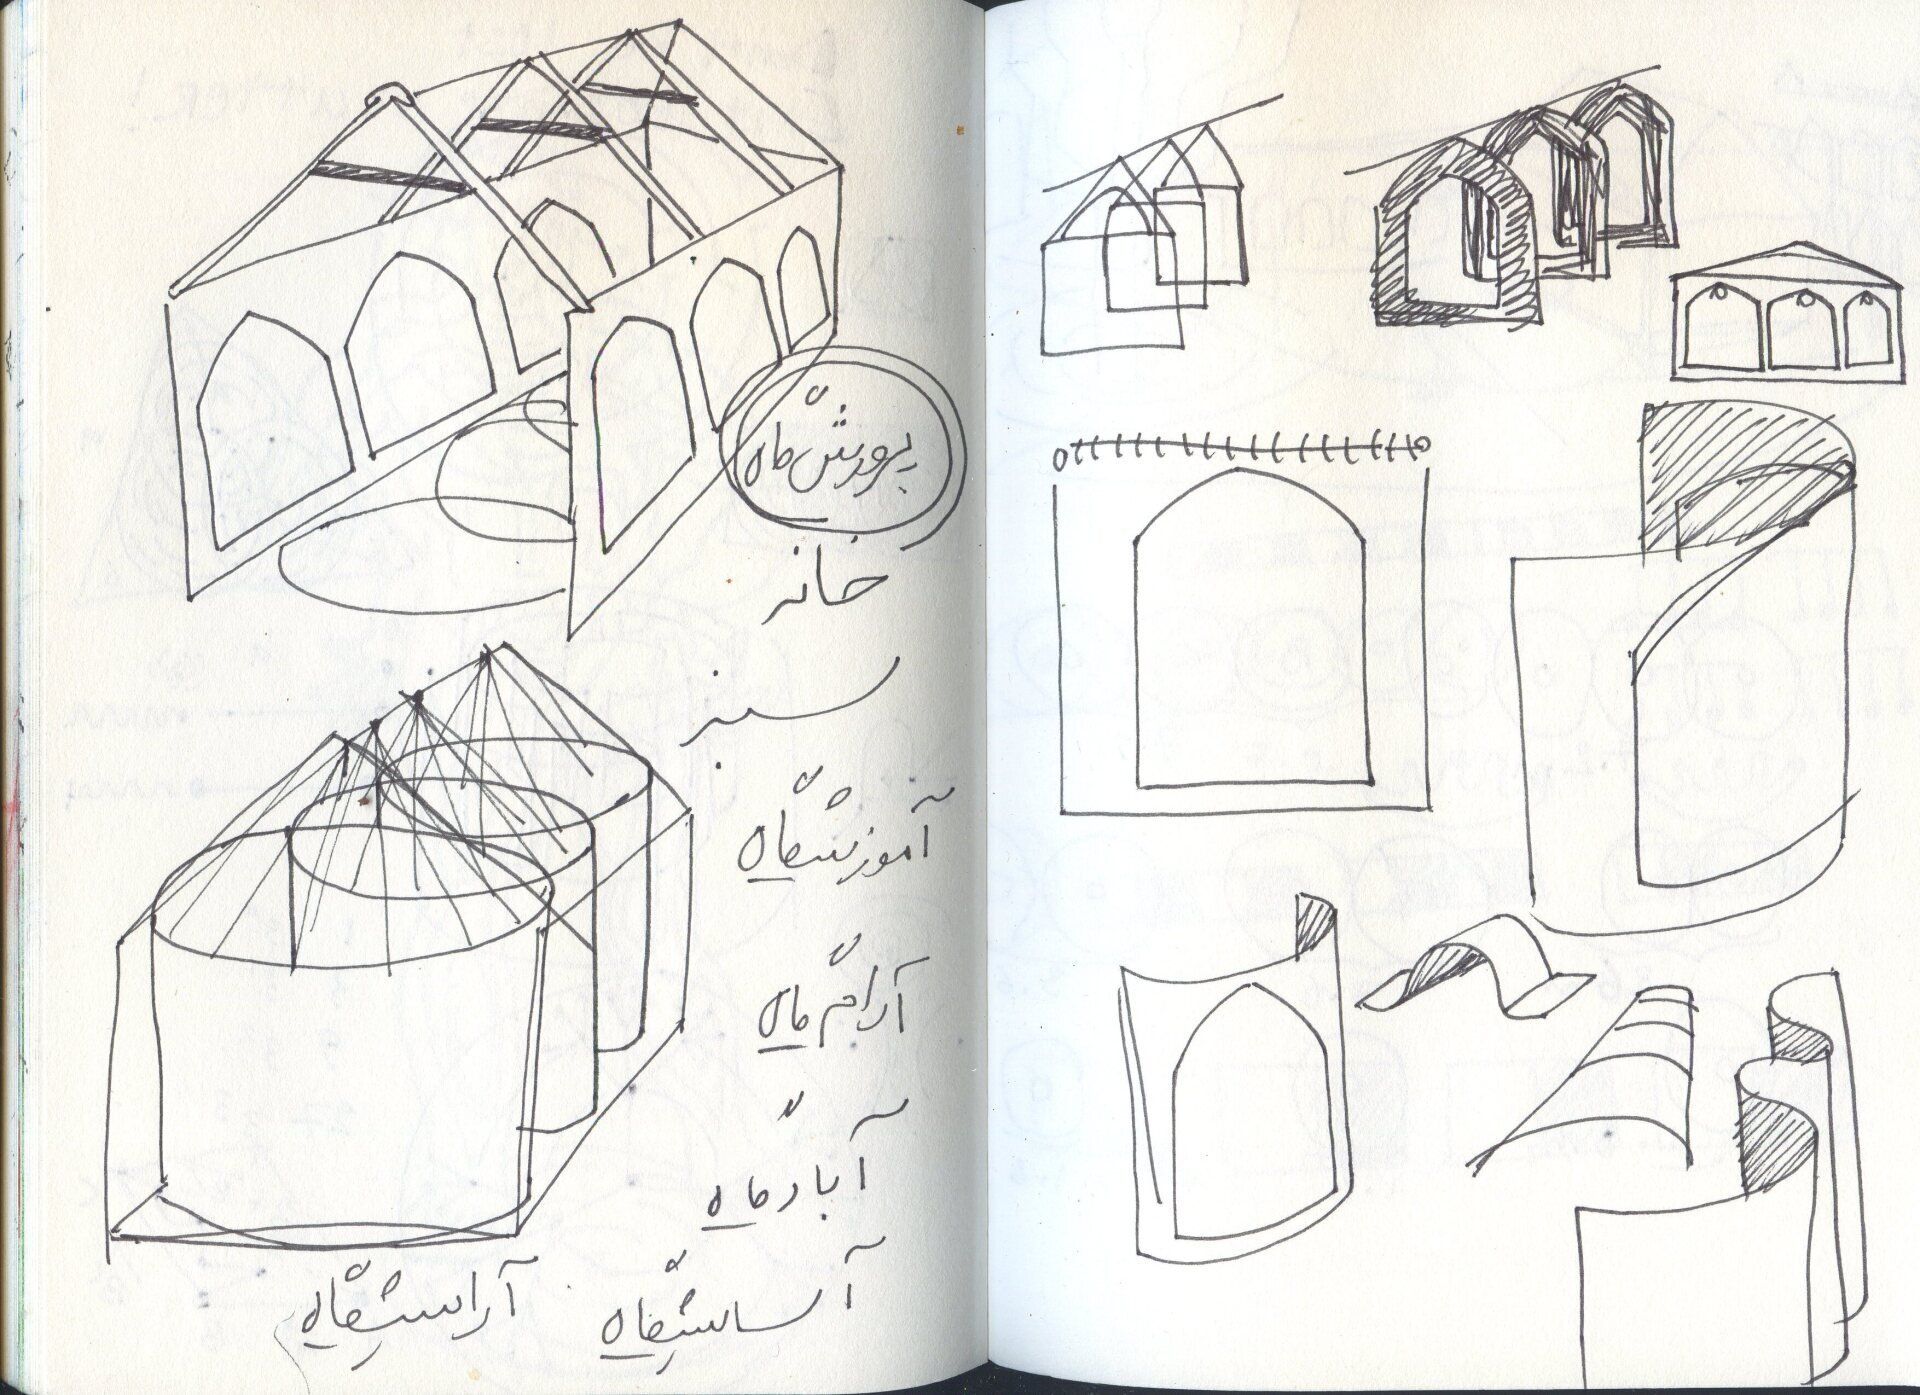 پرورش گاه
خانه
سبز
آموزشگاه
آرام گاه
آباد گاه
آسایشگاه
آرایشگاه